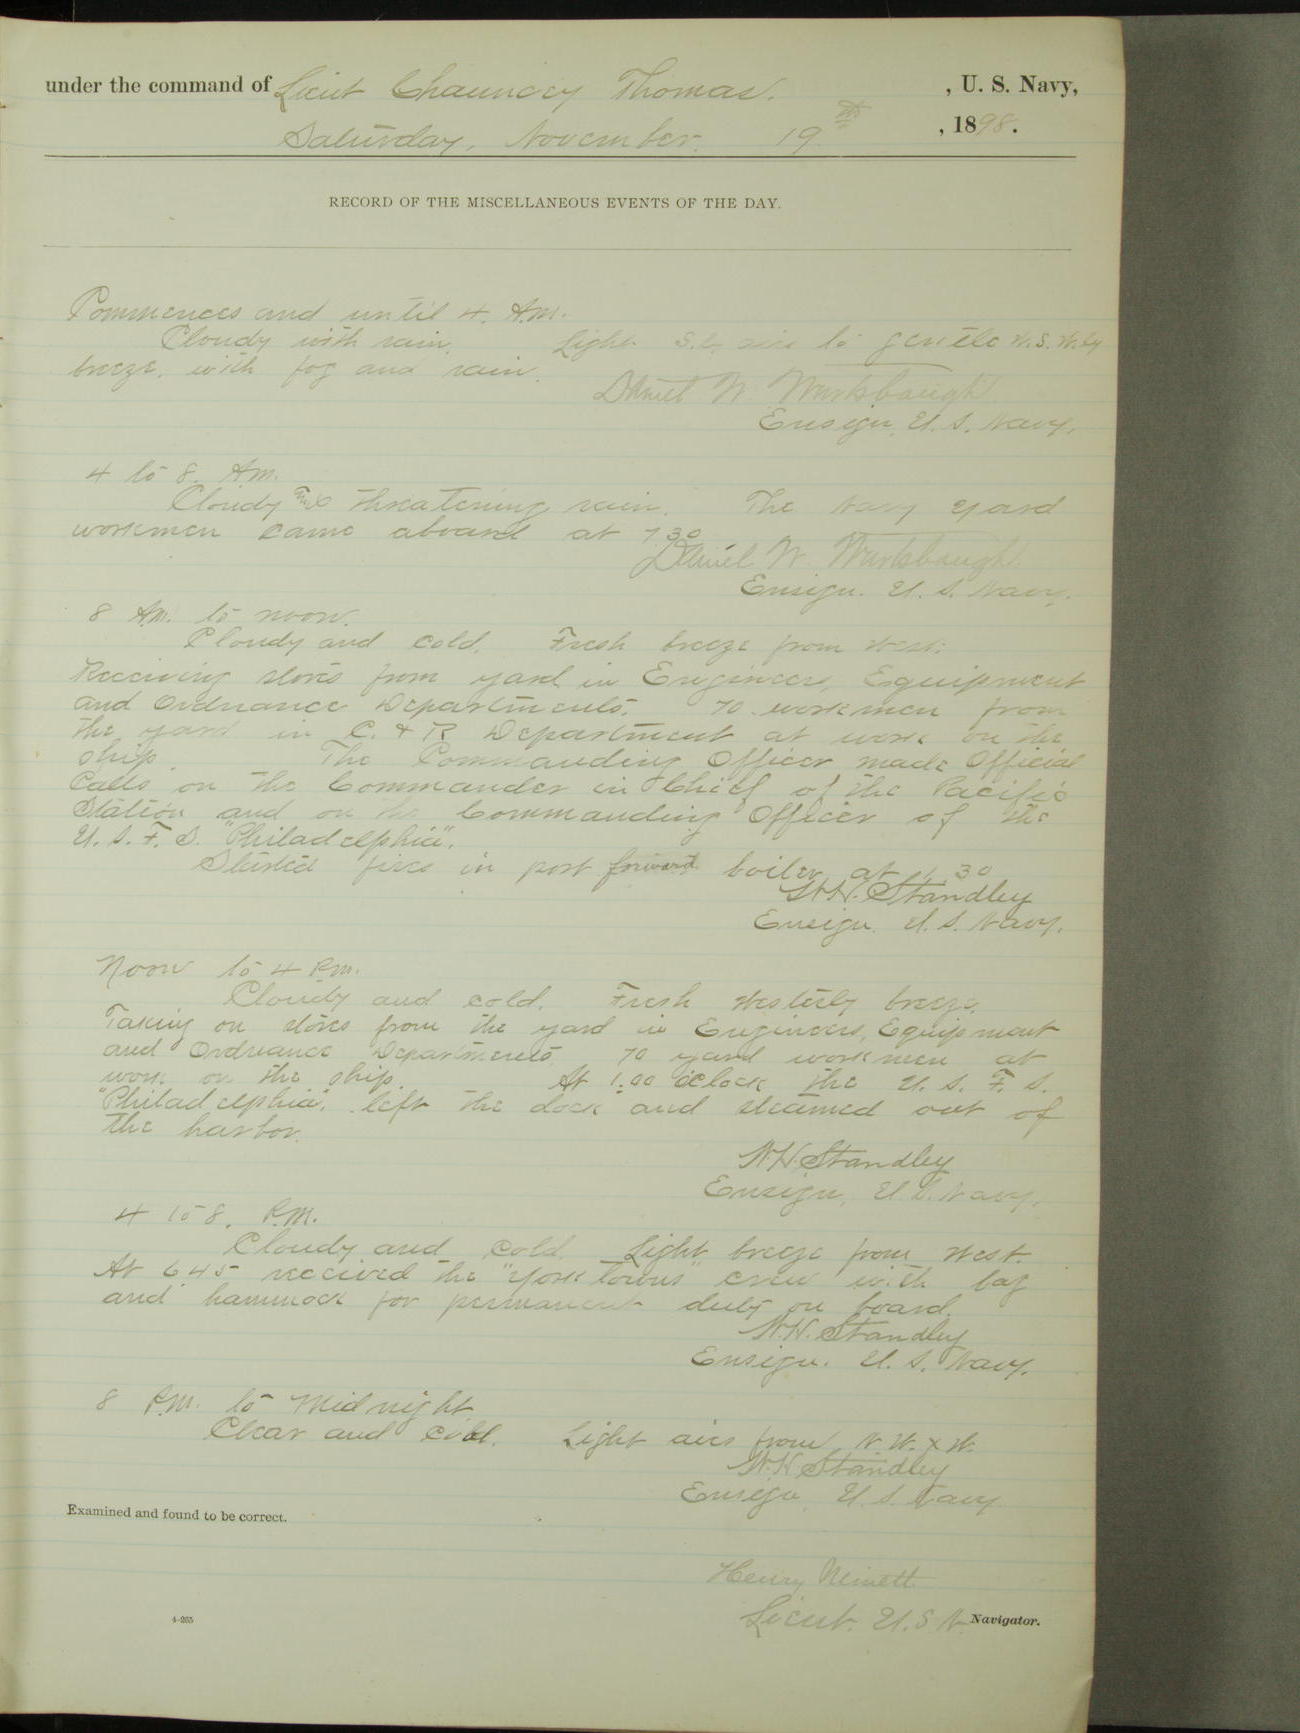 under the command of Lieut Chauncey Thomas. , U. S. Navy,
Saturday, November. 19th , 1898.
RECORD OF THE MISCELLANEOUS EVENTS OF THE DAY.
Commences and until 4. A.M.
Cloudy with rain. Light S.E. airs to gentle W.S.W.ly
breeze. with fog and rain.
Daniel W. Wurtsbaugh
Ensign, U. S. Navy.
4 to 8 A.M.
Cloudy and threatening rain. The Navy yard
workmen came aboard at 7.30
Daniel W. Wurtsbaugh
Ensign. U. S. Navy.
8 A.M. to noon.
Cloudy and cold. Fresh breeze from West.
Receiving stores from yard in Engineers, Equipment
and Ordnance Departments. 70 workmen from
the yard in C. & R Department at work on the
ship. The Commanding Officer made Official
Calls on the Commander in Chief of the Pacific
Station and on the Commanding Officer of the
U. S. F. S. "Philadelphia".
Started fires in port forward boiler at 30
W.H. Standley
Ensign. U. S. Navy.
Noon to 4 P.M.
Cloudy and cold. Fresh Westerly breeze.
Taking on stores from the yard in Engineers, Equipment
and Ordnance Departments 70 yard workmen at
work on the ship. At 1.00 o'clock the U. S. F. S.
"Philadelphia". left the dock and steamed out of
the harbor.
W.H. Standley
Ensign, U. S. Navy.
4 to 8. P.M.
Cloudy and cold Light breeze from West.
At 6.45 received the "Yorktowns" crew with bag
and hammock for permanent duty on board.
W.H. Standley
Ensign. U. S. Navy.
8 P.M. to Midnight
Clear and cold. Light airs from N.W. x W.
W.H. Standley
Ensign U. S. Navy
Examined and found to be correct.
Henry
4-265
Lieut. U. S. N. Navigator.